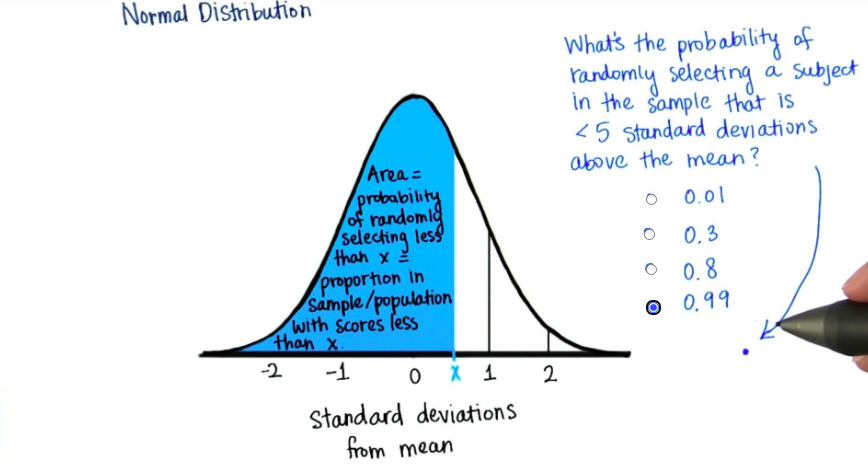 Normal Distribution
What's the probability of
randomly selecting a subject
in the sample that is
<5 standard deviations
above the mean?
0.01
0.3
0.8
0.99
Area =
probability
of randomly
selecting less
than x =
proportion in
sample/population
with scores less
than x.
-2 -1 0 x 1 2
Standard deviations
from mean